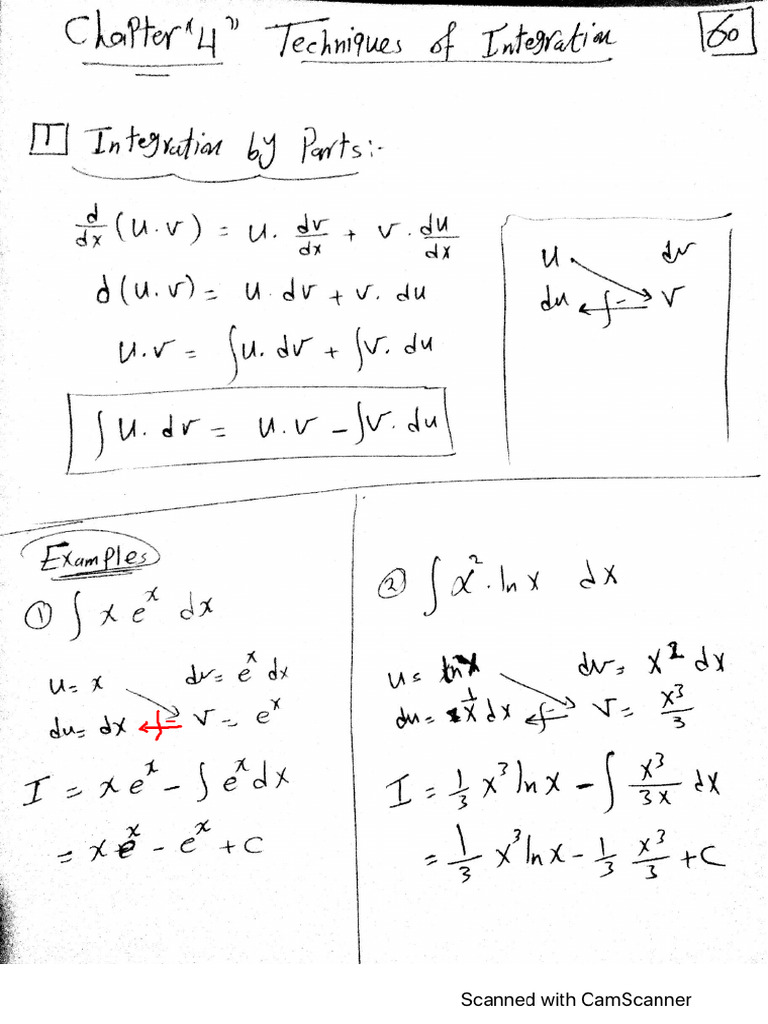 Chapter "4" Techniques of Integration 60
1 Integration by Parts:-
d/dx (u.v) = u. dv/dx + v. du/dx
d(u.v) = u. dv + v. du
u.v = ∫u. dv + ∫v. du
∫u. dv = u.v - ∫v. du
u dv
du ∫- v
Examples
① ∫ x e^x dx
u = x dv = e^x dx
du = dx ∫- v = e^x
I = x e^x - ∫ e^x dx
= x e^x - e^x + C
② ∫ x^2 . ln x dx
u = ln x dv = x^2 dx
du = 1/x dx ∫- v = x^3/3
I = 1/3 x^3 ln x - ∫ x^3/3x dx
= 1/3 x^3 ln x - 1/3 x^3/3 + C
Scanned with CamScanner